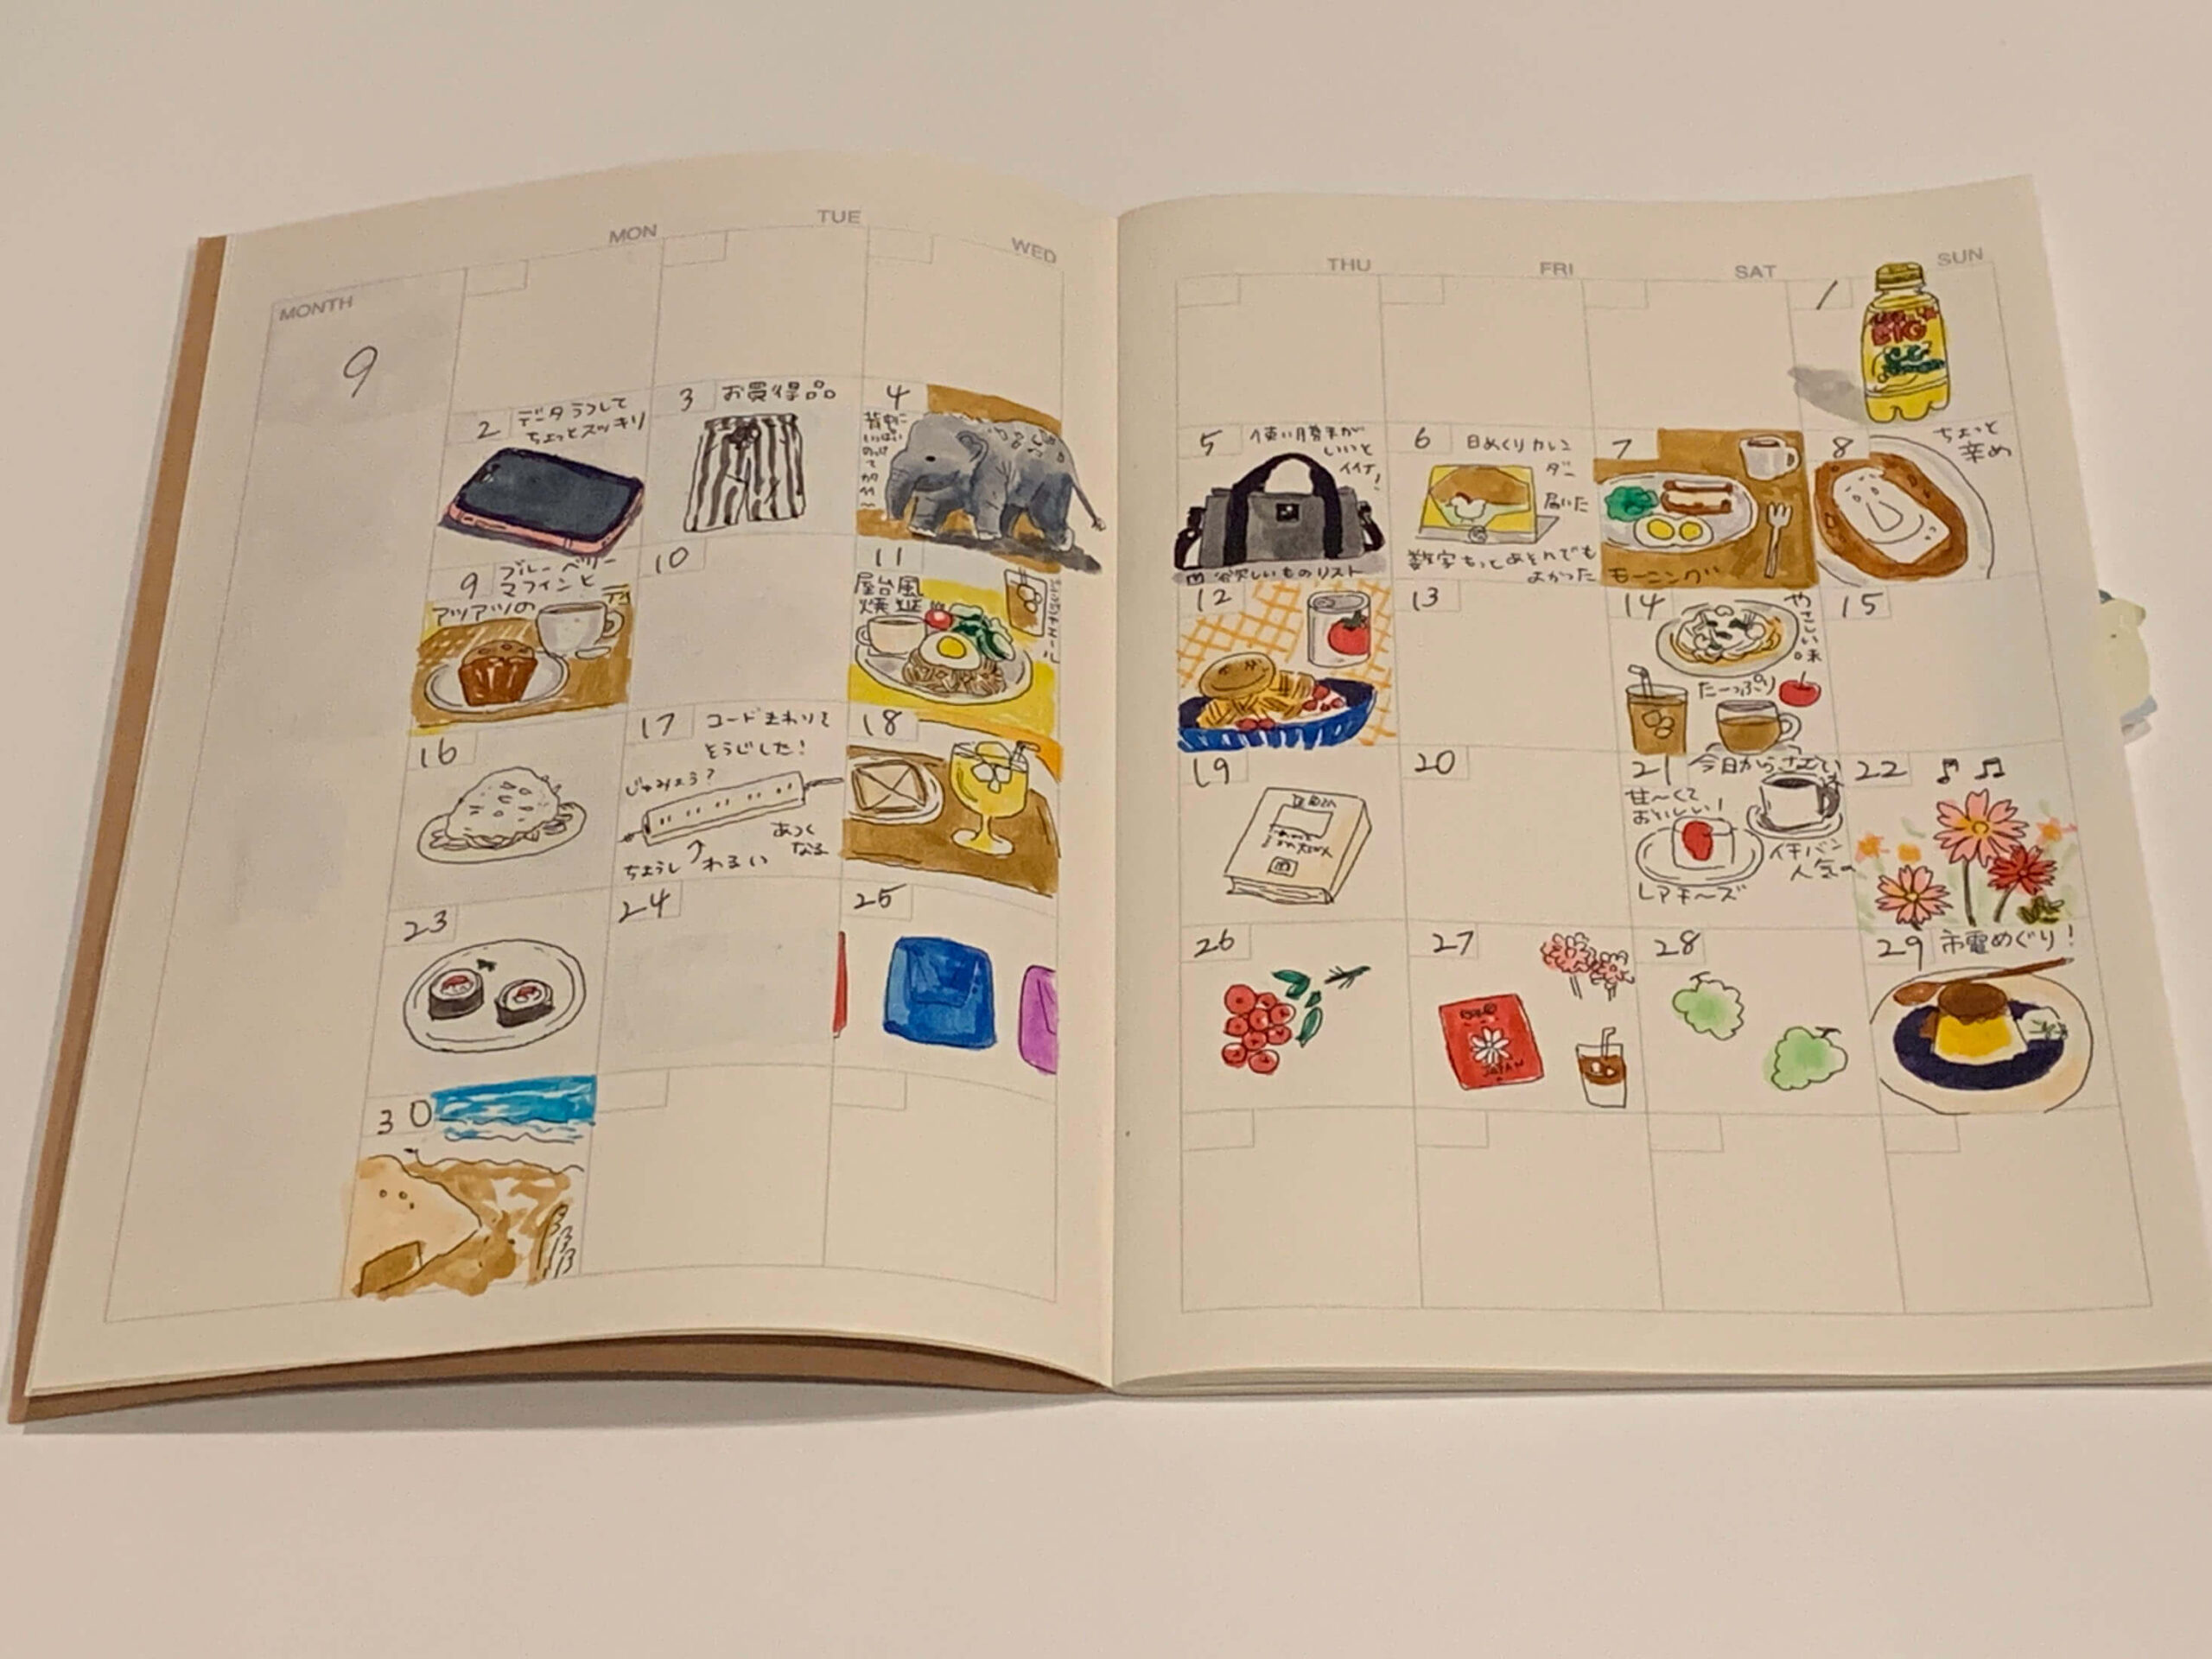 MON
TUE
WED
THU
FRI
SAT
SUN
MONTH
9
1
BIG
2
データうつして
ちょっとスッキリ
3
お買得品
4
いっぱい
のっけ
て
5
使い勝手が
いいと
イイナ!
欲しいものリスト
6
日めくりカレン
ダー
届いた
数字もっとあそんでも
よかった
7
モーニング
8
ちょっと
辛め
9
ブルーベリー
マフィンと
アツアツの
10
11
屋台風
焼そば
12
13
14
やさしい味
たーっぷり
15
16
17
コードまわりを
そうじした!
じゅみょう?
あつく
なる
ちょうし
わるい
18
19
20
21
甘〜くて
おいしい!
イチバン
人気の
レアチーズ
22
23
24
25
26
27
JAPAN
28
29
市電めぐり!
30